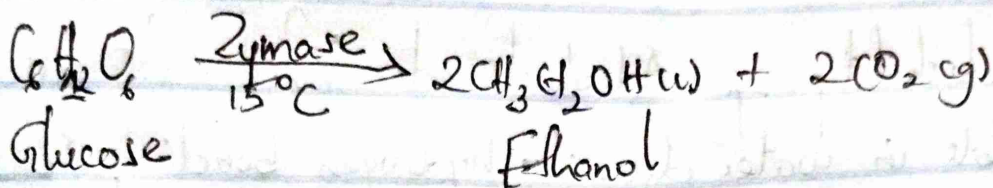 C₆H₁₂O₆ Zymase 15°C → 2CH₃CH₂OH(l) + 2CO₂(g)
Glucose Ethanol